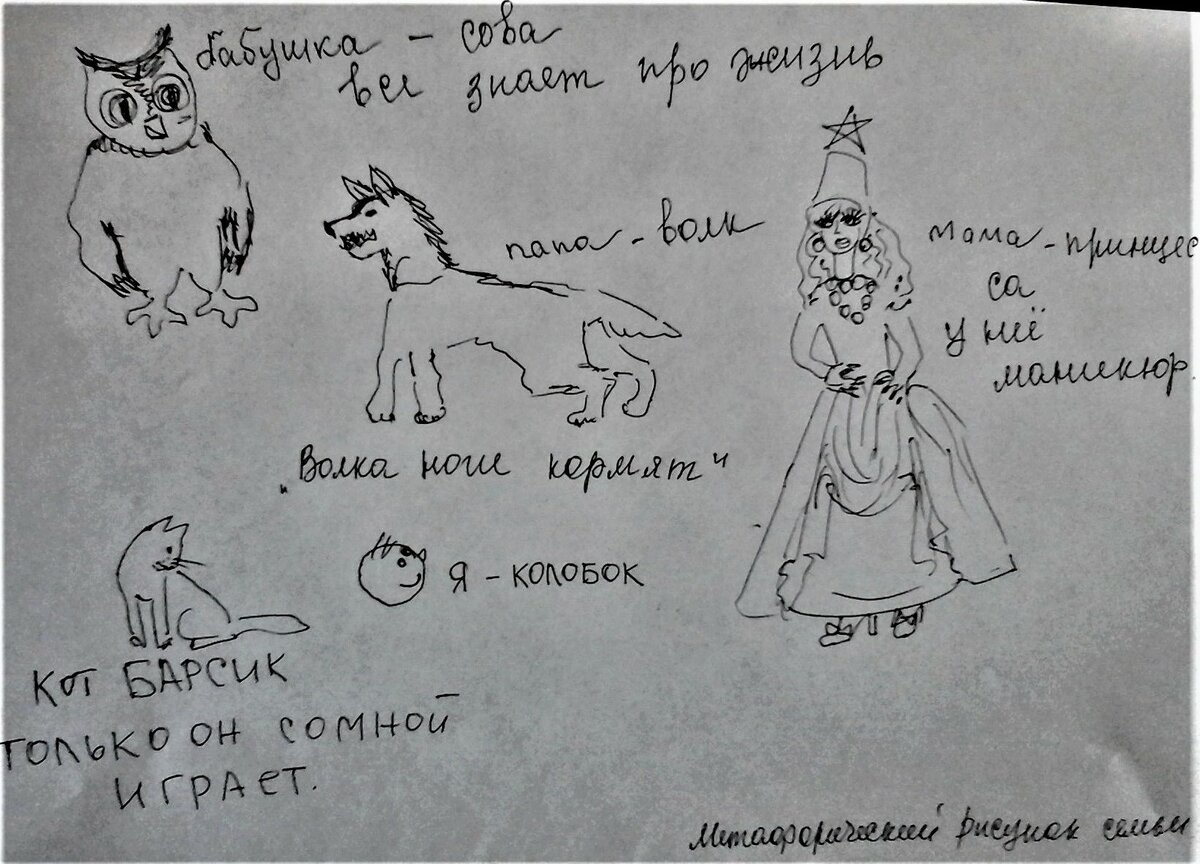 бабушка - сова
все знает про жизнь
папа - волк
мама - принцес
са
у неё
маникюр.
„Волка ноги кормят"
Я - КОЛОБОК
Кот БАРСИК
ТОЛЬКО ОН СОМНОЙ
ИГРАЕТ.
Метафорический рисунок семьи